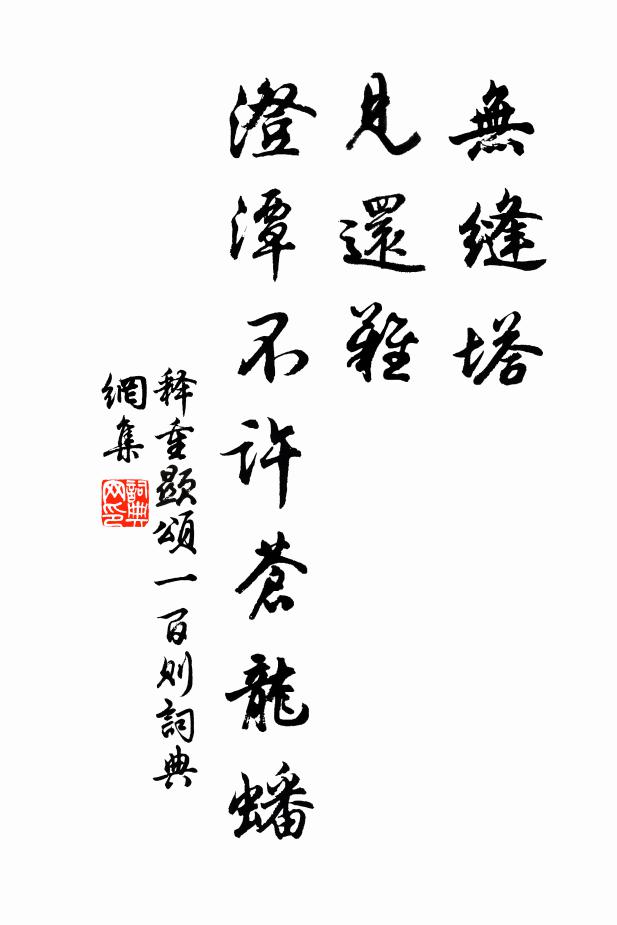 無縫塔
見還難
澄潭不許蒼龍蟠
释重顯頌一百则詞典
網集
詞典
网印